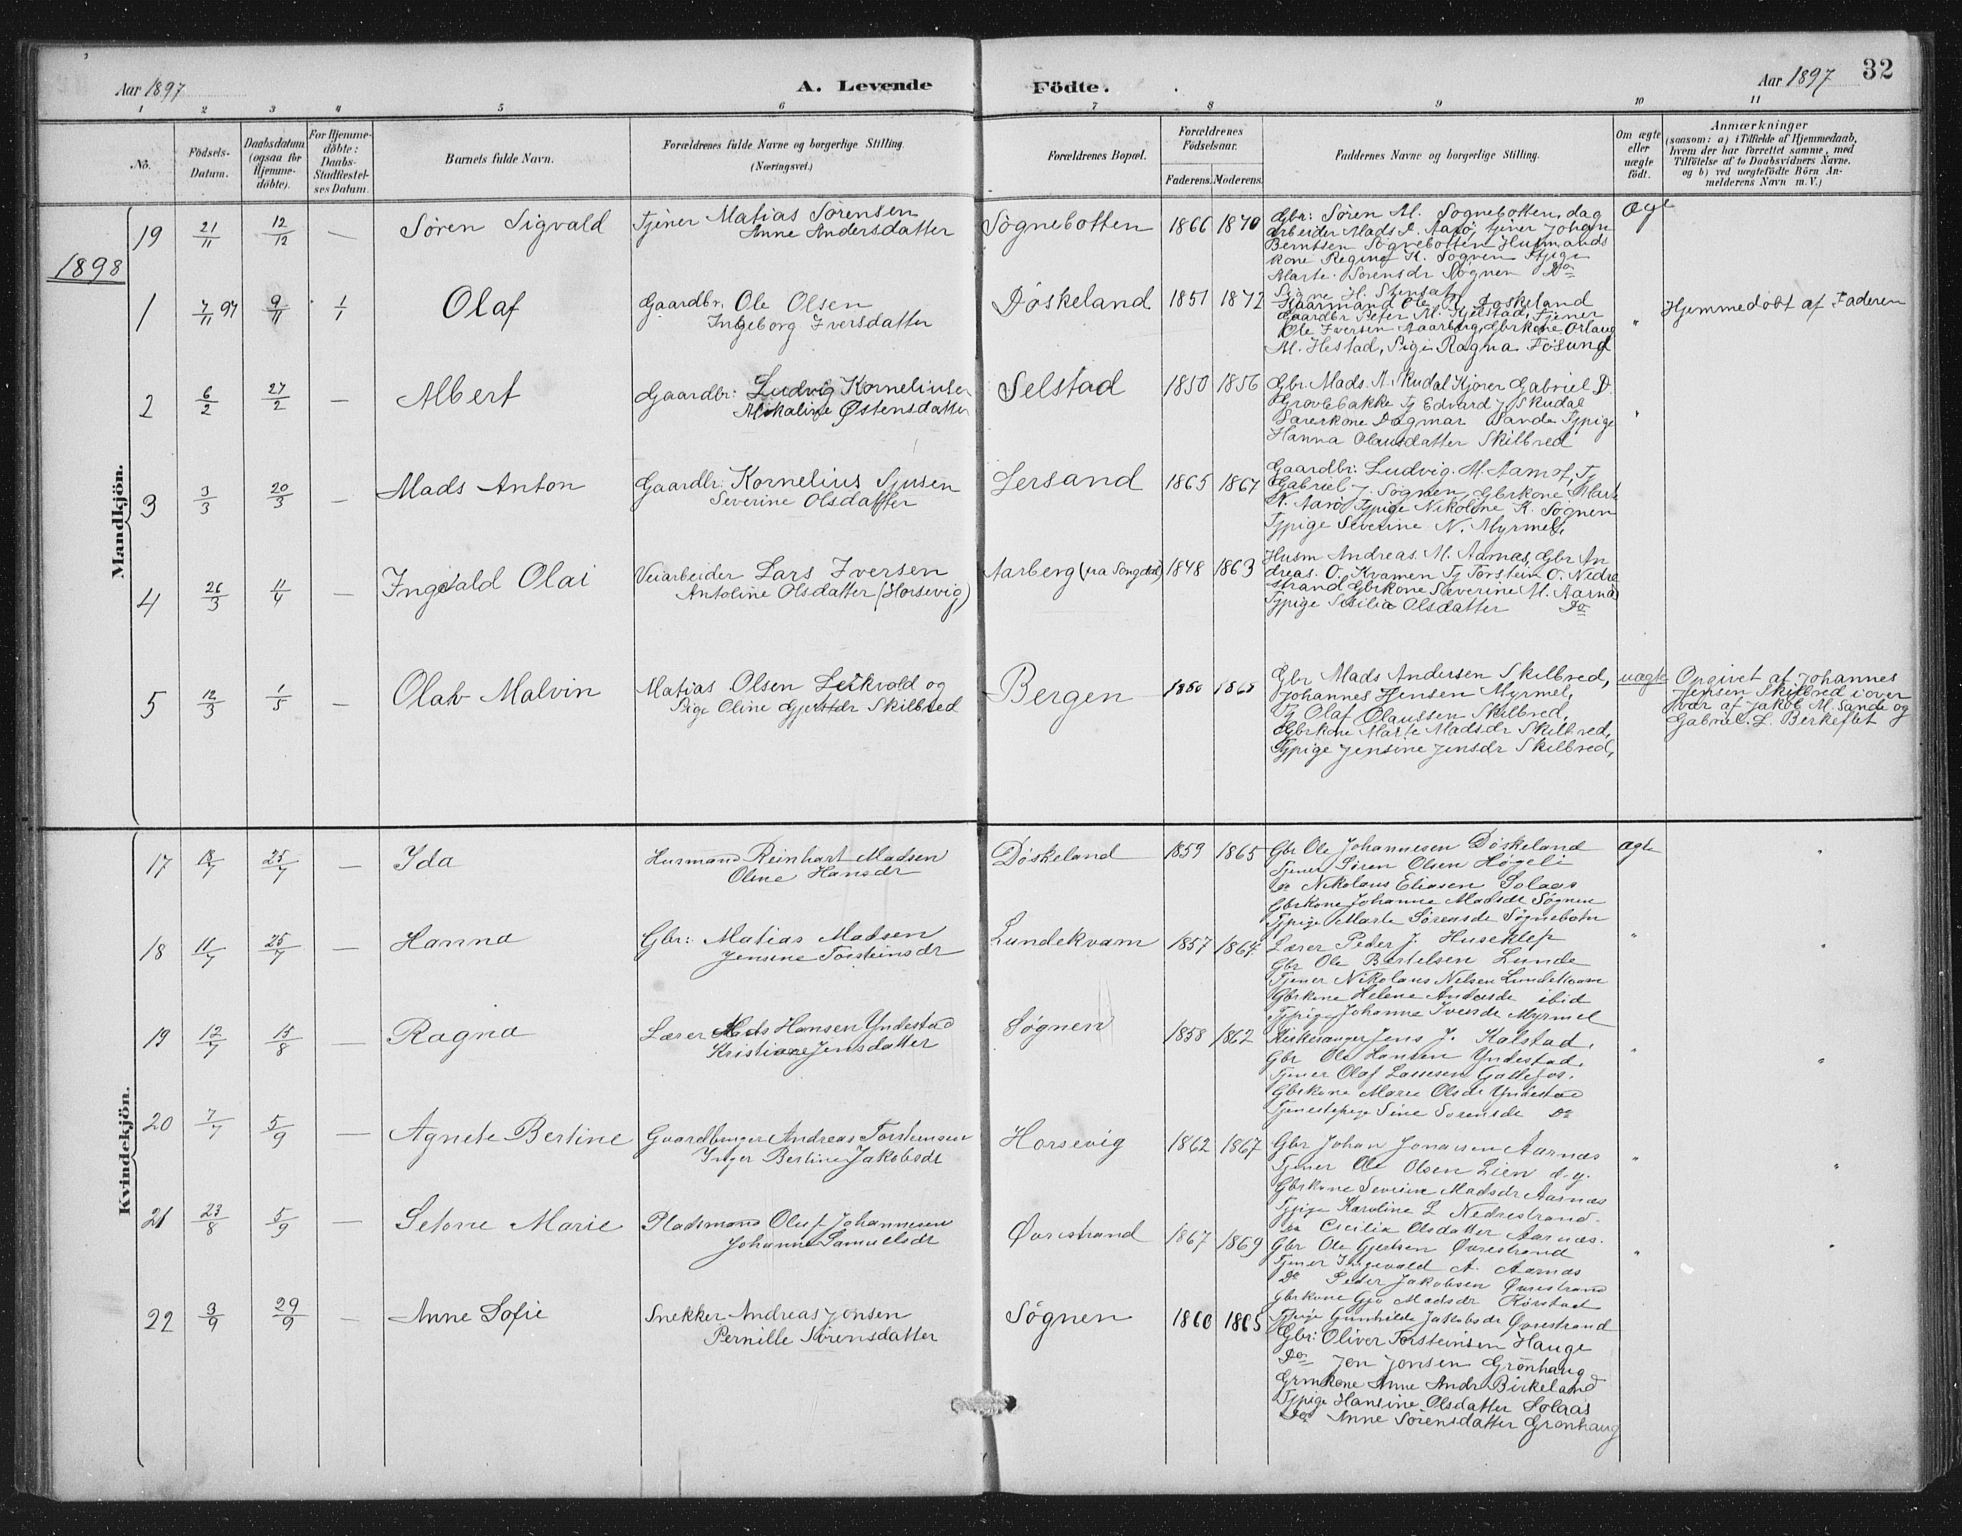 Aar 1897
A. Levende
Födte.
Aar 1897
32
1 2 3 4 5 6 7 8 9 10 11
No.
Födsels-
Datum.
Daabsdatum
(ogsaa for
Hjemme-
döbte).
For Hjemme-
döbte:
Daabs-
Stadfæstel-
ses Datum.
Barnets fulde Navn.
Forældrenes fulde Navne og borgerlige Stilling.
(Næringsvei.)
Forældrenes Bopæl.
Forældrenes
Födselsaar.
Faderens. Moderens.
Faddernes Navne og borgerlige Stilling.
Om ægte
eller
uægte
födt.
Anmærkninger
(saasom: a) i Tilfælde af Hjemmedaab,
hvem der har forrettet samme, med
Tilföielse af to Daabsvidners Navne,
og b) ved uægtefödte Börn An-
melderens Navn m. V.)
Mandkjön.
19 21/11 12/12 — Søren Sigvald
Tjener Matias Sørensen
Anne Andersdatter
Sognebotten 1866 1870
Gbr: Søren M. Sognebotten, dag
arbeider Mads I. Aarø, tjener Johan
Berntsen Sognebotten Husmands
kone Regine K. Sögnen Tjpige
Marte Sørensdr Søgnen Do
Signe H. Stensat
Ægt
1898
1 7/11 97 9/11 1/1 Olaf
Gaardbr. Ole Olsen
Ingeborg Iversdatter
Döskeland 1851 1872
Kaarmand Ole A. Döskeland
Gaardbr Peter M. Hjelstad, Tjener
Ole Iversen Aaarberg, Gbrkone Orlaug
M. Hestad, Pige Ragna Fösund
"
Hjemmedöbt af Faderen
2 6/2 27/2 — Albert
Gaardbr: Ludvig Korneliusen
Mikaline Østensdatter
Selstad 1850 1856
Gbr. Mads A. Skudal Kjører Gabriel D.
Grovlebakke Tj Edvard J Skudal
Lærerkone Dagmar Sande Tjpige
Hanna Olausdatter Skilbred
"
3 3/3 20/3 — Mads Anton
Gaardbr: Kornelius Sjusen
Severine Olsdatter
Lersand 1865 1867
Gaardbr: Ludvig M. Aamot, Tj
Gabriel J. Søgnen, Gbrkone Marte
N. Aarø Tjpige Nikoline K. Søgnen
Tjpige Severine N. Myrmel,
4 26/3 11/4 — Ingevald Olai
Veiarbeider Lars Iversen
Antoline Olsdatter (Horsevig)
Aarberg (fra Songdal) 1848 1863
Husm Andreas M. Aarnas, Gbr An
dreas O. Kvamen Tj Torstein O. Nedre
strand Gbrkone Severine M. Aarnas
Tjpige Sesilia Olsdatter Do
5 12/3 1/5 — Olaf Malvin
Matias Olsen Leikvold og
Pige Oline Gjertsdr Skilbred
Bergen 1850 1865
Gbr Mads Andersen Skilbred,
Johannes Jensen Myrmel,
Tj Olaf Olaussen Skilbred,
Gbrkone Marte Madsdr Skilbred,
Tjpige Jensine Jensdr Skilbred,
uægte
Opgivet af Johannes
Jensen Skilbred i over
vær af Jakob M. Sande og
Gabriel L. Birkeflet
Kvindekjön.
17 13/7 25/7 — Ida
Husmand Reinhart Madsen
Oline Hansdr
Döskeland 1859 1865
Gbr Ole Johannesen Döskeland
Tjener Søren Olsen Høgeli
Do Nikolaus Eliasen Solaas
Gbrkone Johanne Madsdr Søgnen
Tjpige Marte Sørensdr Søgnebotn
ægte "
18 11/7 25/7 — Hanna
Gbr: Matias Madsen
Jensine Torsteinsdr
Lundekvam 1857 1864
Lærer Peder J. Huseklep
Gbr Ole Bertelsen Lunde
Tjener Nikolaus Nielsen Lundekvam
Gbrkone Helene Andersdr ibid
Tjpige Johanne Iversdr Myrmel
" "
19 12/7 15/8 — Ragna
Lærer Mads Hansen Yndestad
Kristiane Jensdatter
Søgnen 1858 1862
Kirkesanger Jens J. Kalstad.
Gbr Ole Hansen Yndestad.
Tjener Olaf Lassesen Galtefos.
Gbrkone Marie Olsdr Yndestad
Tjenestepige Sine Sørensdr Do
" "
20 7/7 5/9 — Agnete Bertine
Gaardbruger Andreas Torsteinsen
Inger Bertine Jakobsdr
Horsevig 1862 1867
Gbr Johan Jonassen Aarnæs
Tjener Ole Olsen Lien d.y.
Gbrkone Severine Madsdr Aarnæs
Tjpige Karoline L Nedrestrand.
Do Cecilia Olsdatter Aarnæs.
" "
21 23/8 5/9 — Setone Marie
Pladsmand Oluf Johannesen
Johanne Samuelsdr
Øvrestrand 1867 1869
Gbr Ole Gjertsen Øvrestrand
Tjener Ingevald A. Aarnæs
Do Peder Jakobsen Øvrestrand
Gbrkone Gjø Madsdr Rørstad
Tjpige Gunhilde Jakobsdr Øvrestrand
" "
22 3/9 29/9 — Anne Sofie
Snekker Andreas Jonsen
Pernille Sørensdatter
Søgnen 1860 1865
Gbr: Oliver Torsteinsen Hauge
Do Jon Jonsen Grønhaug
Grmkone Anne Andr Birkeland
Tjpige Hansine Olsdatter Solaas
Do Anne Sørensdatter Grønhaug